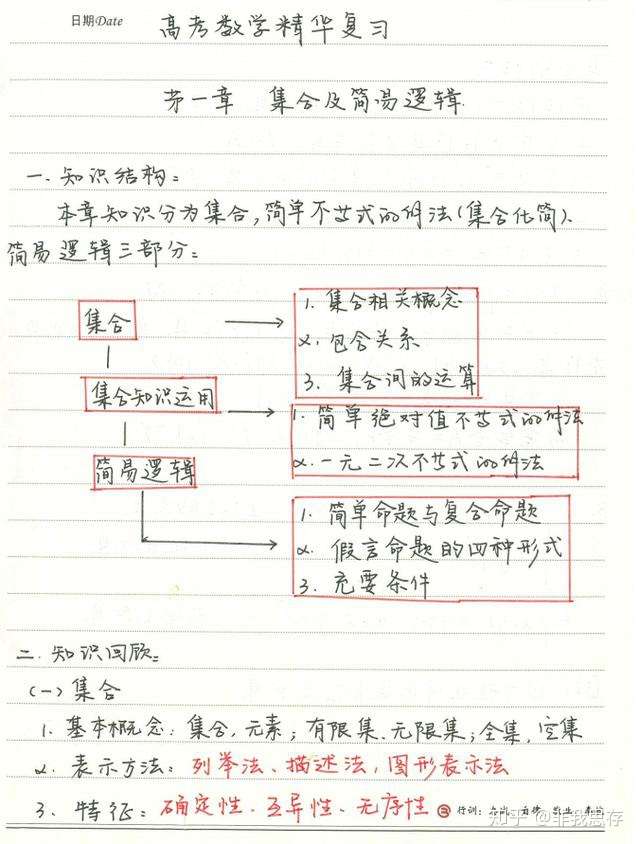 日期Date
高考数学精华复习
第一章 集合及简易逻辑
一.知识结构:
本章知识分为集合,简单不等式的解法(集合化简)、
简易逻辑三部分:
集合
1. 集合相关概念
2. 包含关系
3. 集合间的运算
集合知识运用
1. 简单绝对值不等式的解法
2. 一元二次不等式的解法
简易逻辑
1. 简单命题与复合命题
2. 假言命题的四种形式
3. 充要条件
二.知识回顾:
(一)集合
1. 基本概念:集合,元素;有限集、无限集;全集,空集
2. 表示方法:列举法、描述法,图形表示法
3. 特征:确定性、互异性、无序性
知乎 @非我思存